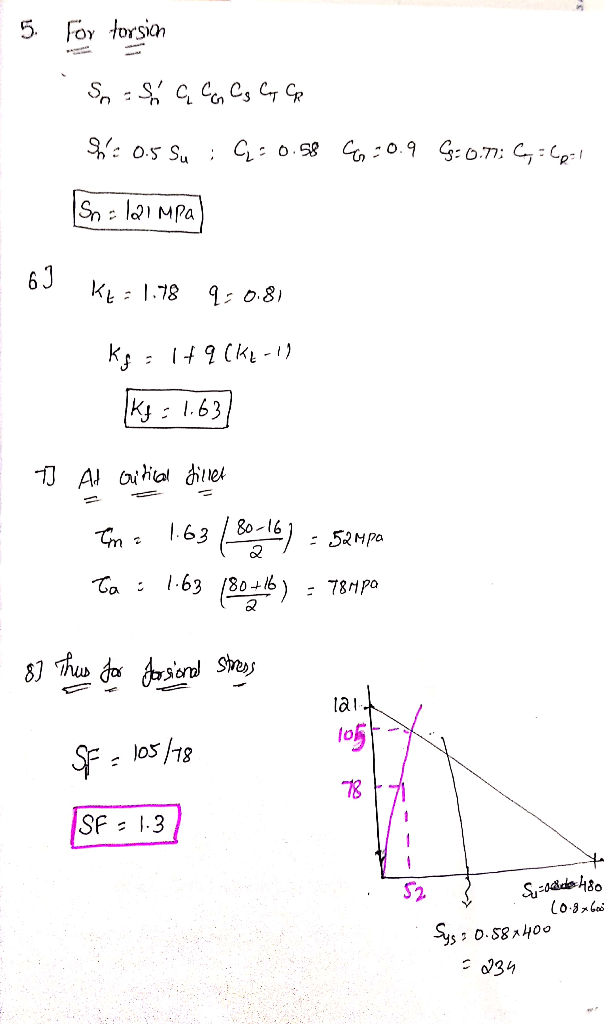 5. For torsion
Sn = Sn' CL CG CS CT CR
Sn' = 0.5 Su ; CL = 0.58 CG = 0.9 CS = 0.77; CT = CR = 1
Sn = 121 MPa
6] Kt = 1.78 q = 0.81
Kf = 1 + q (Kt - 1)
Kf = 1.63
7] At critical fillet
τm = 1.63 (80-16 / 2) = 52 MPa
τa = 1.63 (80+16 / 2) = 78 MPa
8] Thus for torsional stress
SF = 105/78
SF = 1.3
121
105
78
52
480
(0.8 x 600
Sys = 0.58 x 400
= 234